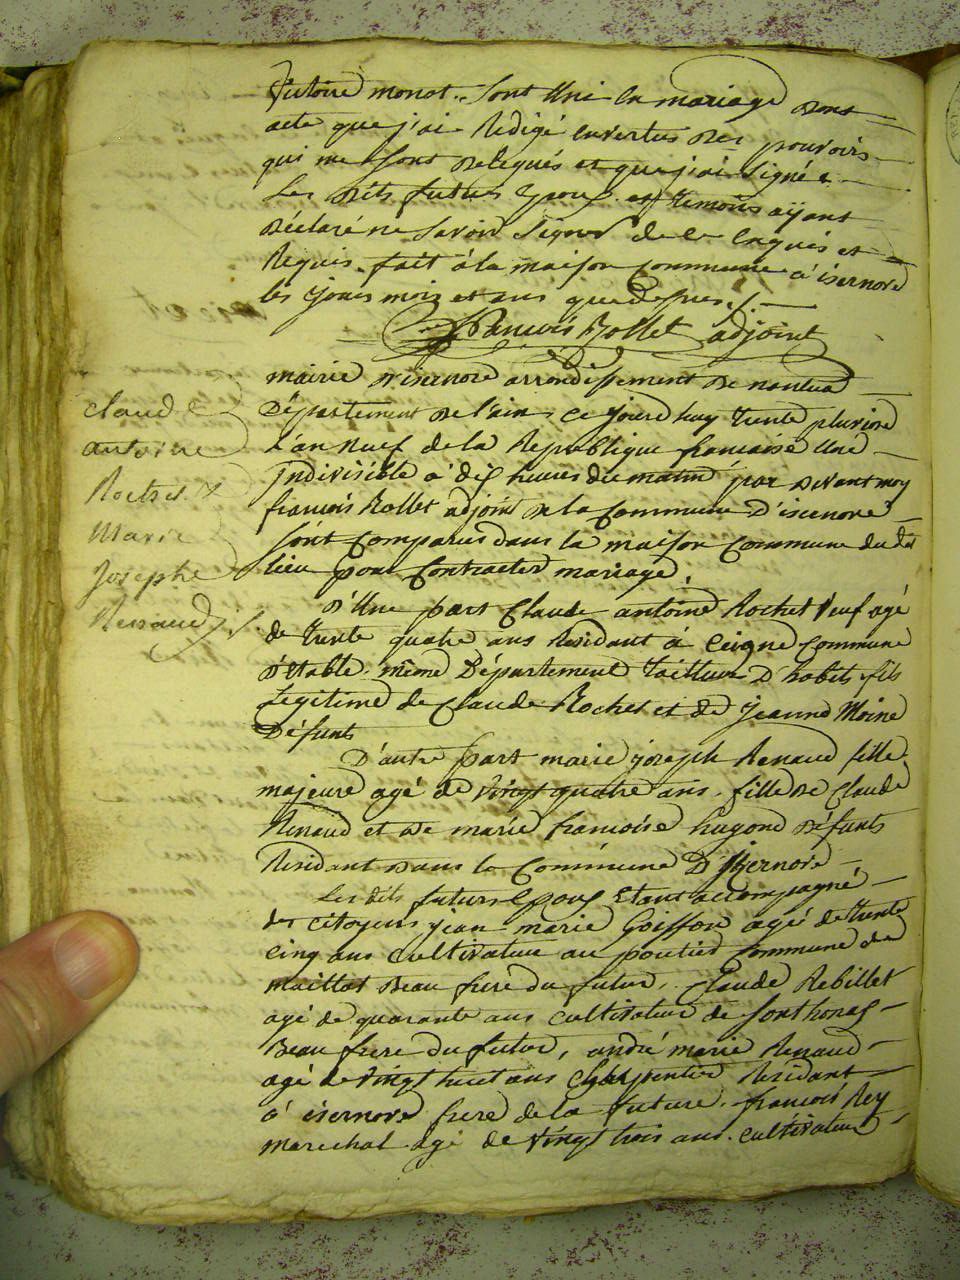 victoire monot .. sont Uni en mariage Dont
acte que j'ai Redigé envertus Des pouvoirs
qui me sont Delegués et que j'ai signé
Les Dits futurs Epoux et temoins aÿant
Déclaré ne savoir signer de ce Enquis et
Requis. fait à la maison Commune d'isernore
les jours mois et ans que dessus ./.
françois Rollet adjoint
mairie D'isernore arrondissement De nantua
Département De l'ain, Ce jourd huy trente pluviose
L'an Neuf de la Republique francaise Une
indivisible à dix heures du matin par Devant moy
francois Rollet adjoint De la Commune D'isernore
sont Comparus dans la maison Commune du dit
lieu pour Contracter mariage
Claude
antoine
Rochet &
Marie
Josephe
Renaud ./.
D'Une part Claude antoine Rochet Veuf agé
de trente quatre ans Residant à Ceigne Commune
D'Etable même Département tailleur D'habits fils
Legitime de Claude Rochet et de Jeanne Moine
Défunts
D'autre part marie joseph Renaud fille
majeure agé de vingt quatre ans. fille De Claude
Renaud et De marie francoise hugon Défunts
Residant Dans la Commune D'isernore
Les dits futurs Epoux Etant accompagné
des citoyens jean marie Goiffon agé de trente
cinq ans cultivateur au pontier Commune de
maillat Beau frere du futur, Claude Rebillet
agé de quarante ans cultivateur de sonthonas
Beau frere Du futur, andré marie Renaud
agé de vingt huit ans Charpentier Residant
à isernore frere de la future. francois Rey
marechal agé de vingt trois ans. cultivateur